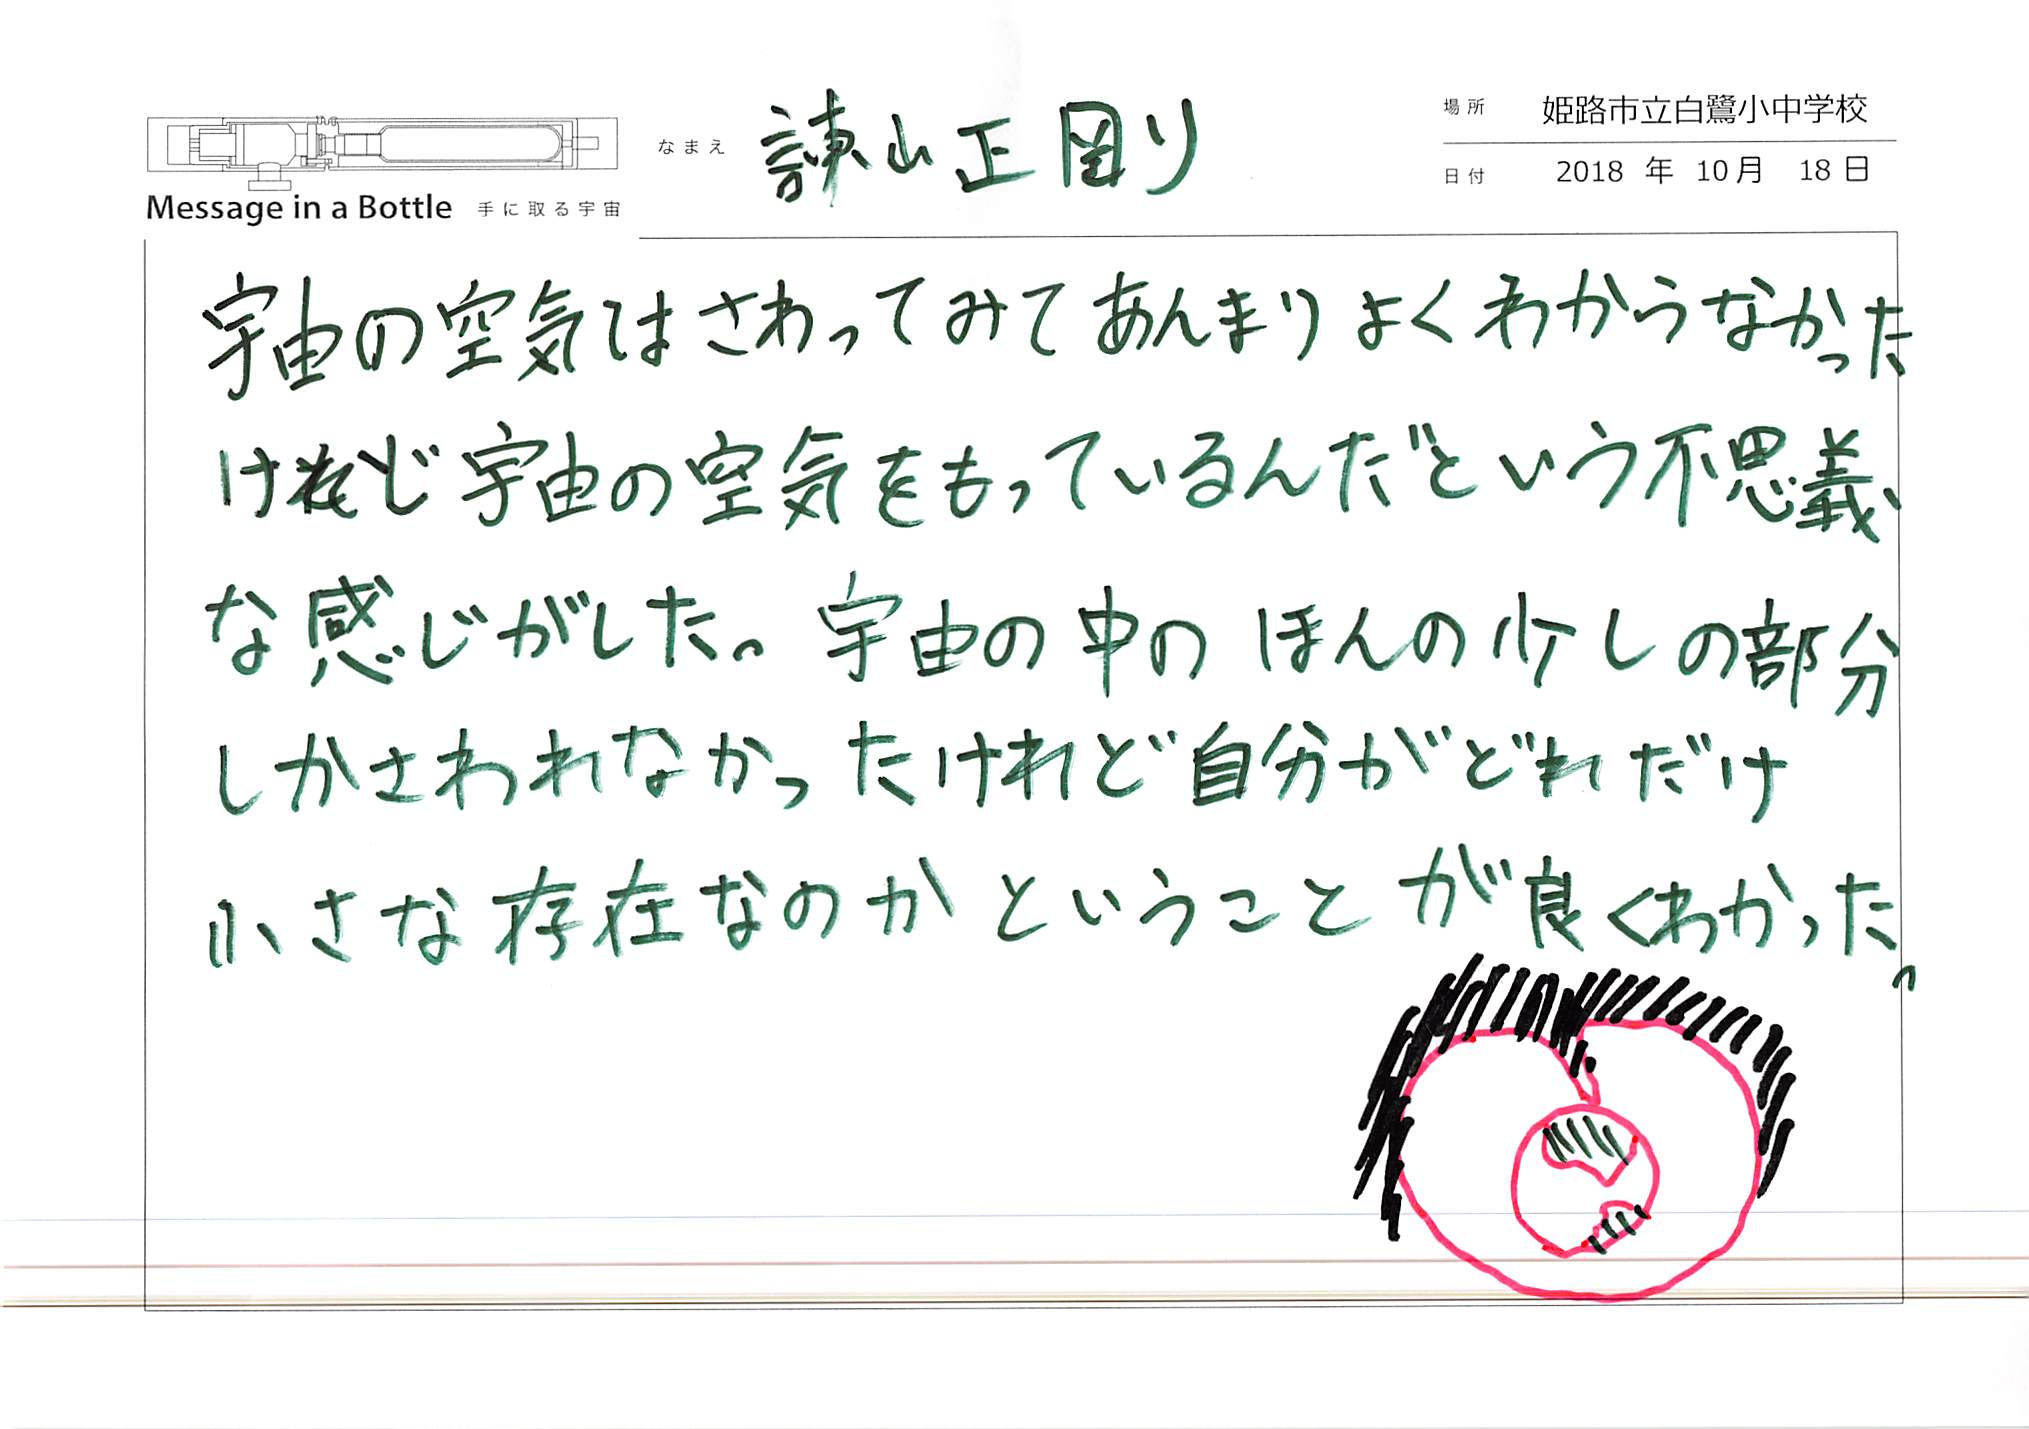 場所 姫路市立白鷺小中学校
なまえ 諌山正剛
日付 2018 年 10 月 18 日
Message in a Bottle 手に取る宇宙
宇宙の空気はさわってみてあんまりよくわからなかった
けれど宇宙の空気をもっているんだという不思議
な感じがした。宇宙の中のほんの少しの部分
しかさわれなかったけれど自分がどれだけ
小さな存在なのかということが良くわかった。